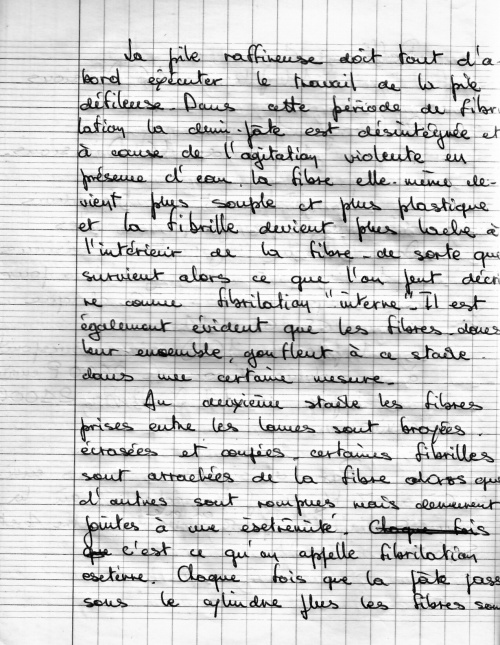 La pile raffineuse doit tout d'a-
bord éxécuter le travail de la pile
défileuse. Dans cette période de fibri
lation la demi-pâte est désintégrée et
à cause de l'agitation violente en
présence d'eau, la fibre elle-même de-
vient plus souple et plus plastique
et la fibrille devient plus lache à
l'intérieur de la fibre - de sorte que
survient alors ce que l'on peut décri
re comme fibrilation "interne". Il est
également évident que les fibres dans
leur ensemble, gonflent à ce stade
dans une certaine mesure.
Au deuxième stade les fibres
prises entre les lames sont broyées,
écrasées et coupées, certaines fibrilles
sont arrachées de la fibre alors que
d'autres sont rompues mais demeurent
jointes à une extrêmité. Chaque fois
que c'est ce qu'on appelle fibrilation
externe. Chaque fois que la pâte pass
sous le cylindre plus les fibres son